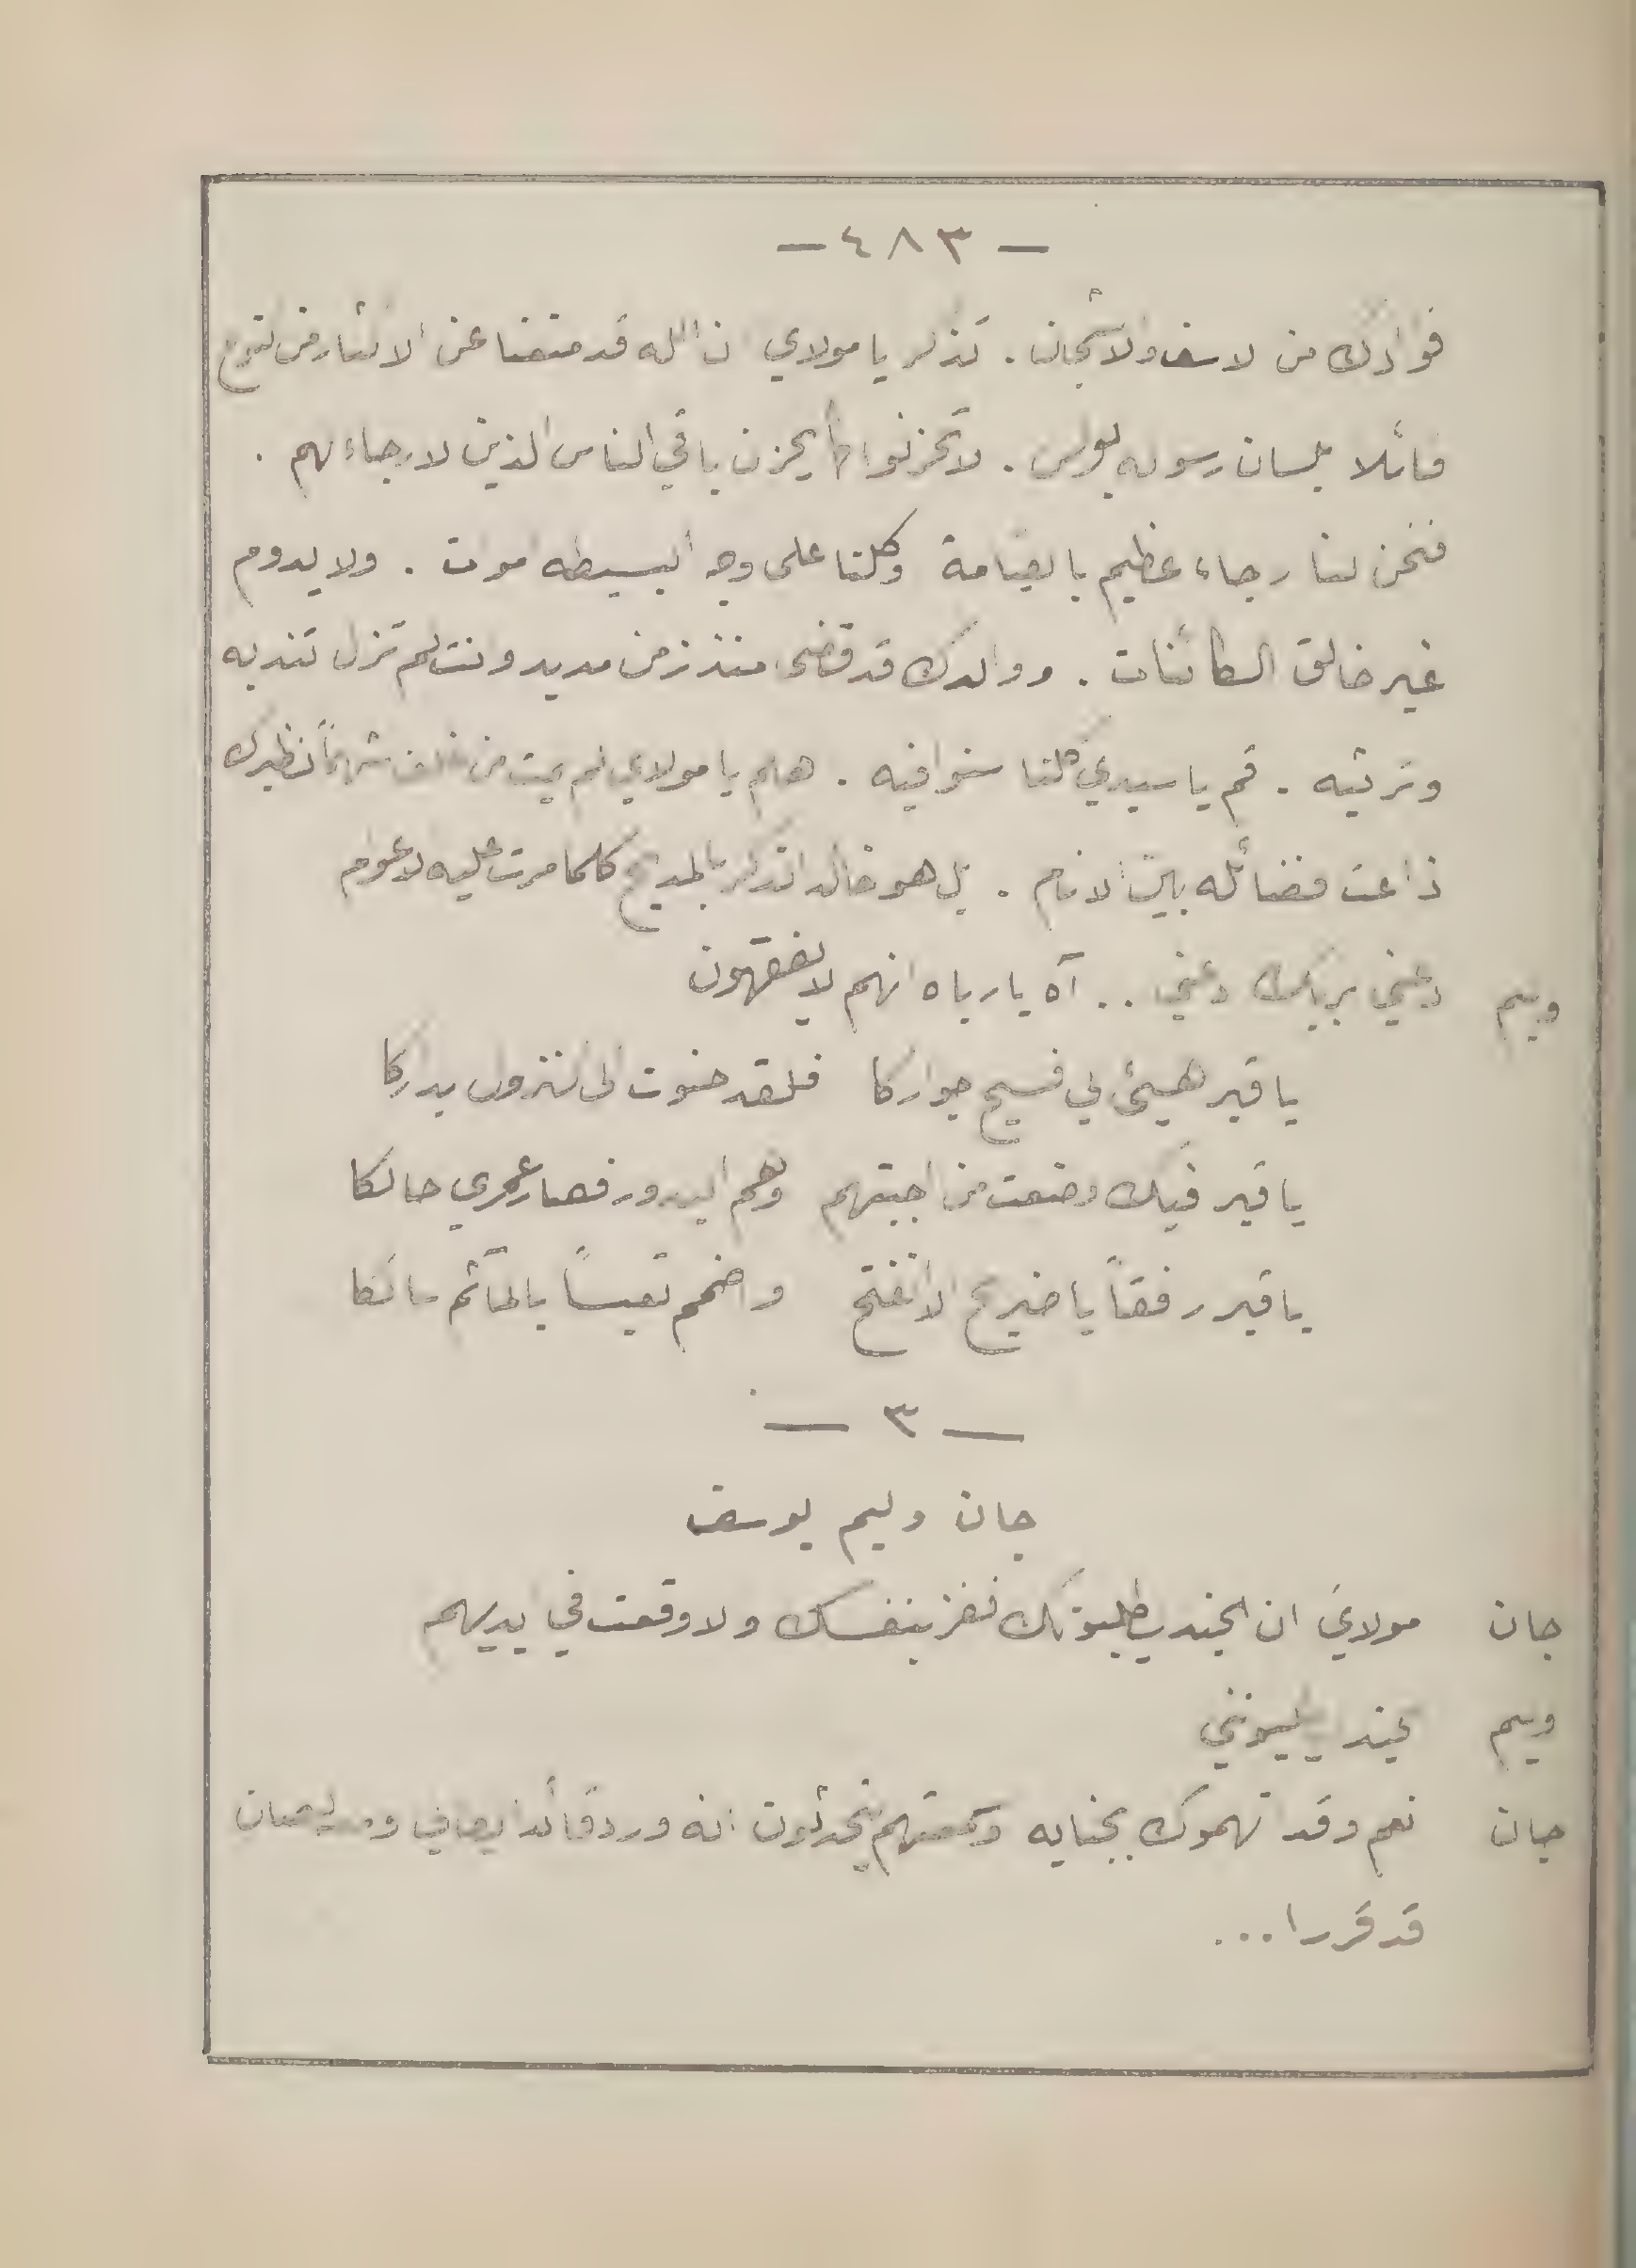 — ٤٨٣ —
فوادك من الاسف والاشجان . تذكر يا مولاي ان الله قد منعنا عن الاكثار من النوح
قائلا بلسان رسوله بولس . لا تحزنوا كما يحزن باقي الناس الذين لا رجاء لهم .
فنحن لنا رجاء عظيم بالقيامة وكلنا على وجه البسيطه اموات . ولا يدوم
غير خالق الكائنات . ووالدك قد قضى منذ زمن مديد وانت لم تزل تندبه
وترثيه . قم يا سيدي كلنا سنوافيه . هلم يا مولاي لم يمت من خلف شهماً نظيرك
ذاعت فضائله بين الانام . بل هو خالد الذكر بالمديح كلما مرت عليه الاعوام
وليم دعني بربك دعني .. آه يا رباه انهم لا يفقهون
يا قبر هيئ لي فسيح جواركا فلقد حنوت الى النزول بداركا
يا قبر فيك وضعت من احببتهم وهم البدور فصار عمري حالكا
يا قبر رفقاً يا ضريح الا انفتح واضمم تعيساً بالمآثم سالكا
— ٣ —
جان وليم يوسف
جان مولاي ان الجند يطلبونك ففز بنفسك والا وقعت في ايديهم
وليم الجند يطلبونني
جان نعم وقد اتهموك بجنايه وسمعتهم يتحدثون انه ورد قائد
قد قررا ...